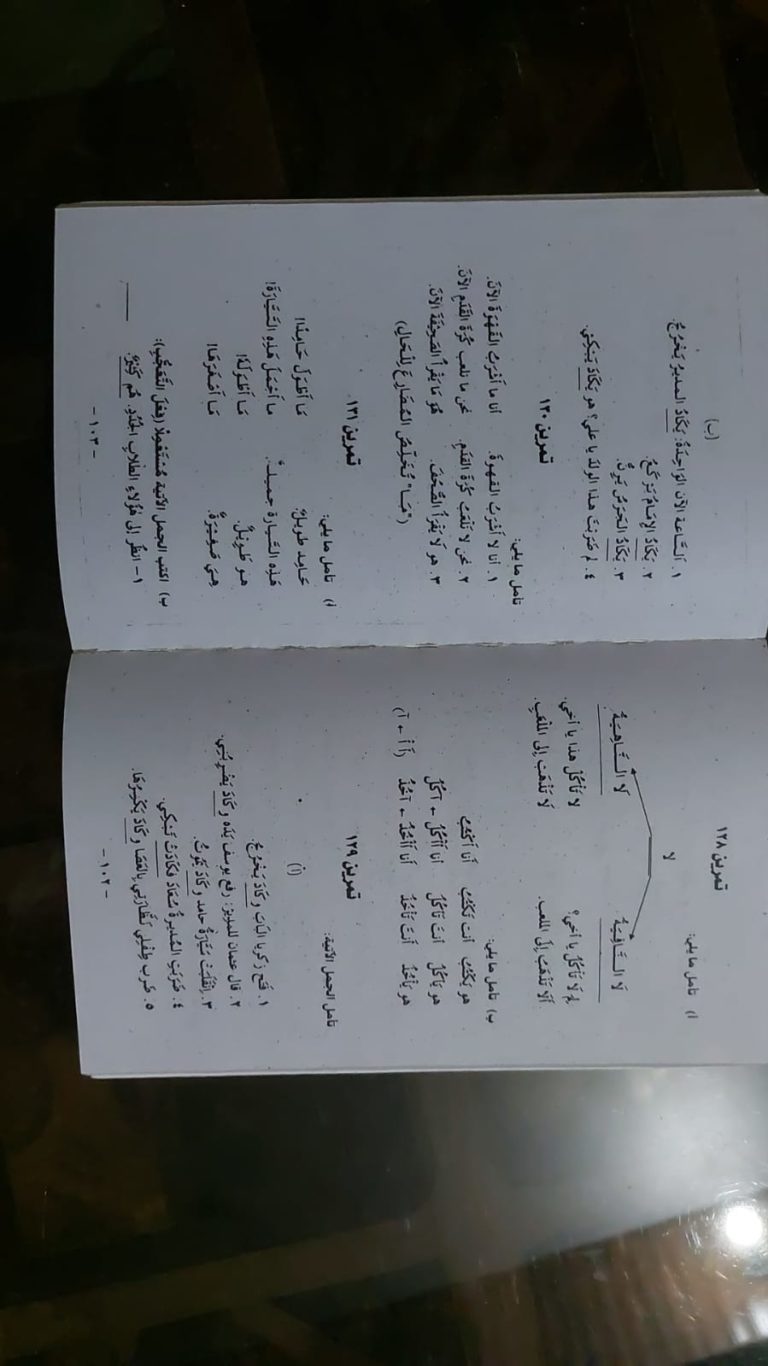 تمرين ١٢٨
أ) تأمل ما يلي:
لا
لَا النَّافِيَةُ لَا النَّاهِيَةُ
لِمَ لَا تَأْكُلُ يا أخي؟ لا تَأْكُلْ هذا يا أخي.
أَلَا تَذْهَبُ إِلَى اللعب. لَا تَذْهَبْ إِلى اللَّعِبِ.
ب) تأمل ما يلي:
هو يَكْتُبُ أنت تَكْتُبُ أنا أَكْتُبُ
هو يَأْكُلُ أنتَ تَأْكُلُ أنا أَأْكُلُ ← آكُلُ
هو يَأْخُذُ أنتَ تَأْخُذُ أنا أَأْخُذُ ← آخُذُ (أَ أْ ← آ)
تمرين ١٢٩
تأمل الجمل الآتية:
(أ)
١. فتح زكريا البابَ وكَادَ يَخْرُجُ.
٢. قال عثمان للمدير: رفع يوسف يَدَه وكَادَ يَضْرِبُنِي.
٣. اِنْقَلَبَتْ سَيَّارَةُ حامد وكَادَ يَمُوتُ.
٤. ضَرَبَتِ المُدِيرةُ سُعَادَ فَكَادَتْ تَبْكِي.
٥. ضَرب طِفْلِي نَظَّارَتِي بِالْعَصَا وكَادَ يَكْسِرُهَا.
- ١٠٢ -
(ب)
١. اَلسَّاعة الآن الوَاحِدَةُ. يَكَادُ المديرُ يَخْرُجُ.
٢. يَكَادُ الإِمَامُ يَرْكَعُ.
٣. يَكَادُ الجَرَسُ يَرِنُّ.
٤. لم ضَرَبْتَ هذا الولدَ يا علي؟ هو يَكَادُ يَبْكِي.
تمرين ١٣٠
تأمل ما يلي:
١. أنا لا أَشْرَبُ القهوةَ. أنا ما أَشْرَبُ القَهْوَةَ الآنَ.
٢. نحن لا نَلْعَبُ كُرَةَ القَدَمِ. نحن ما نلعب كُرَةَ القَدَمِ الآنَ.
٣. هو لَا يَقْرَأُ الصُّحُفَ. هُوَ مَا يَقْرَأُ الصَّحِيفَةَ الآنَ.
("مَـا" تُخَلِّصُ المُضَارِعَ لِلْحَالِ)
تمرين ١٣١
أ) تأمل ما يلي:
حَامِد طويلٌ. مَا أَطْوَلَ حَامِدًا!
هَذِهِ السَّيارة جميلةٌ. ما أَجْمَلَ هَذِهِ السَّيَّارَةَ!
هو طَوِيلٌ. مَا أَطْوَلَهُ!
هِيَ صَغِيرَةٌ. مَا أَصْغَرَهَا!
ب) اكتب الجمل الآتية مُسْتَعْمِلًا (فِعْلَ التَّعَجُّبِ):
١- انظُر إِلى هَؤُلَاءِ الطلابِ الجُدُدِ. هُم كَثِيرٌ.
- ١٠٣ -